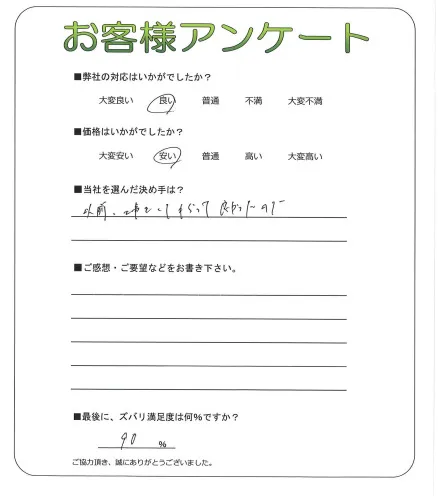 お客様アンケート
■弊社の対応はいかがでしたか？
大変良い 良い 普通 不満 大変不満
■価格はいかがでしたか？
大変安い 安い 普通 高い 大変高い
■当社を選んだ決め手は？
以前、工事をしてもらって良かったので
■ご感想・ご要望などをお書き下さい。
■最後に、ズバリ満足度は何％ですか？
90 ％
ご協力頂き、誠にありがとうございました。